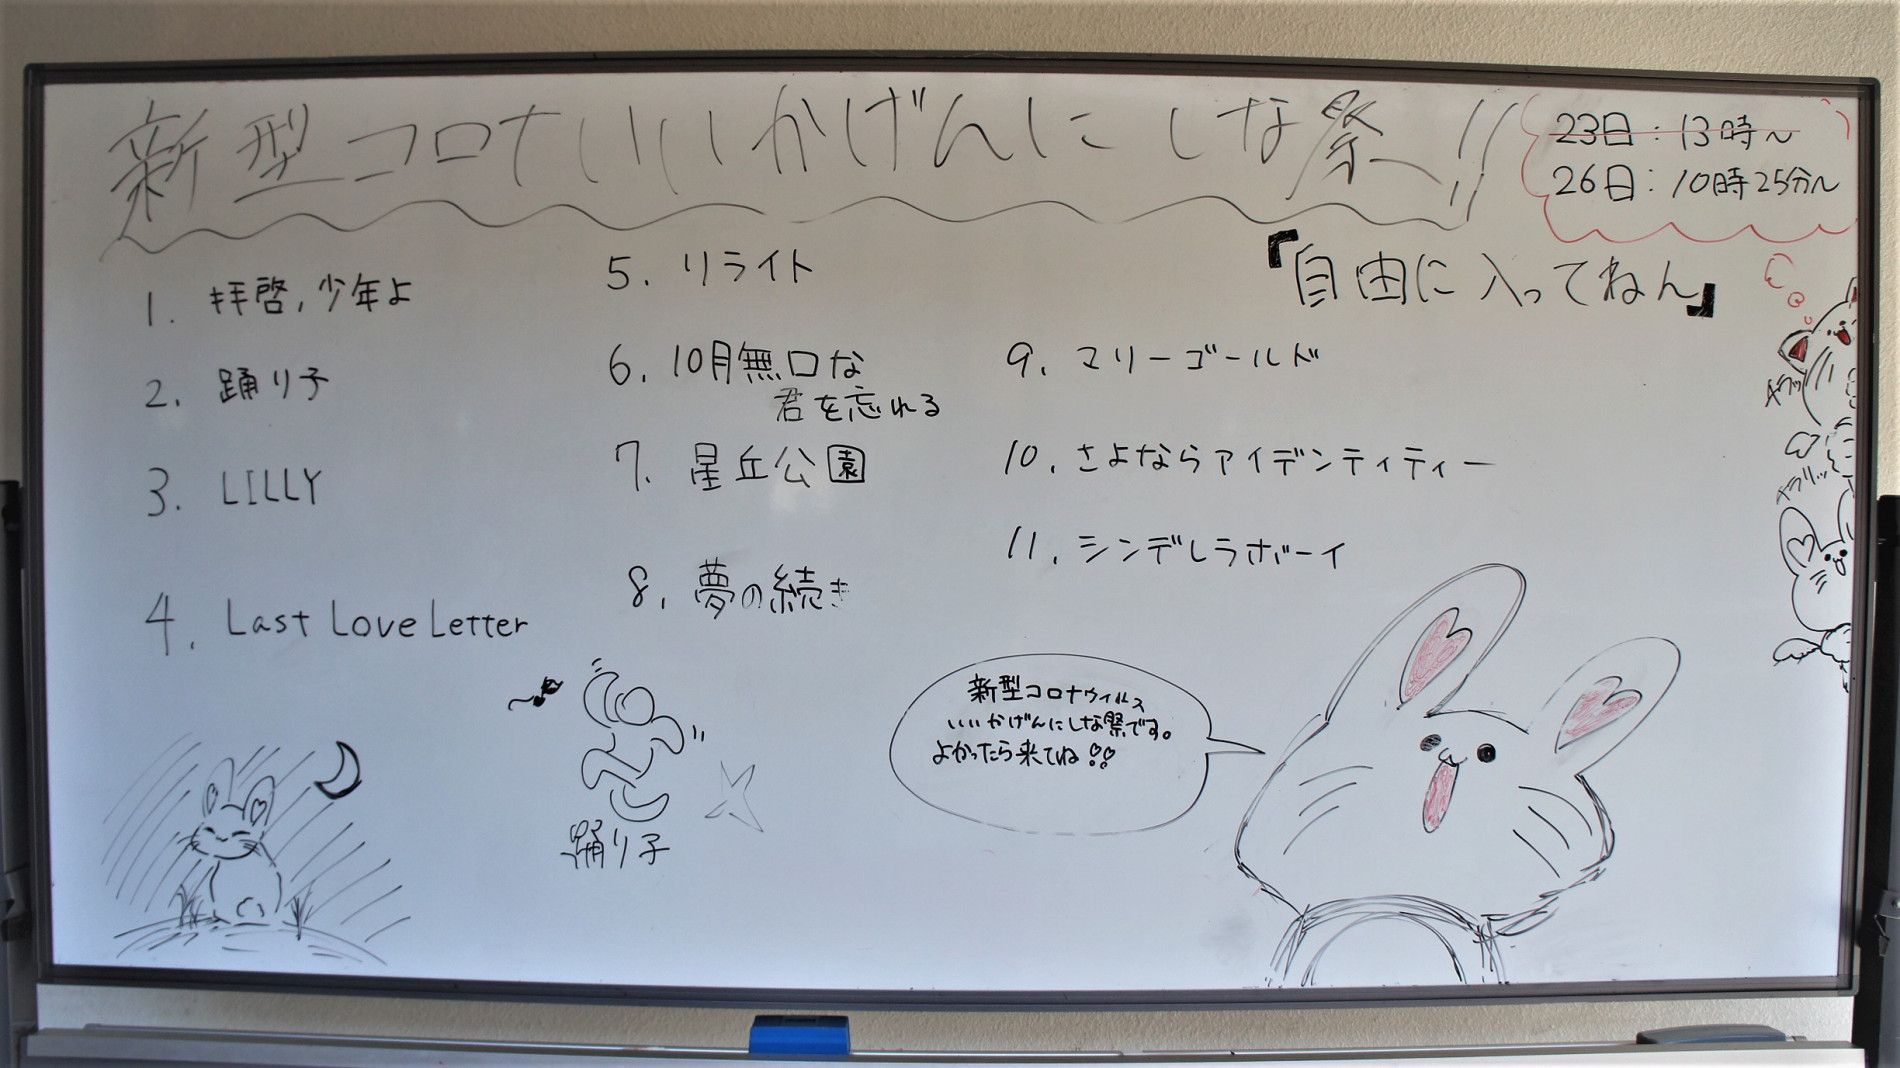 新型コロナいいかげんにしな祭!!
23日:13時〜
26日:10時25分〜
『自由に入ってねん』
1. 拝啓,少年よ
2. 踊り子
3. LILLY
4. Last Love Letter
5. リライト
6. 10月無口な
君を忘れる
7. 星丘公園
8. 夢の続き
9. マリーゴールド
10. さよならアイデンティティー
11. シンデレラボーイ
踊り子
新型コロナウィルス
いいかげんにしな祭です。
よかったら来てね!!